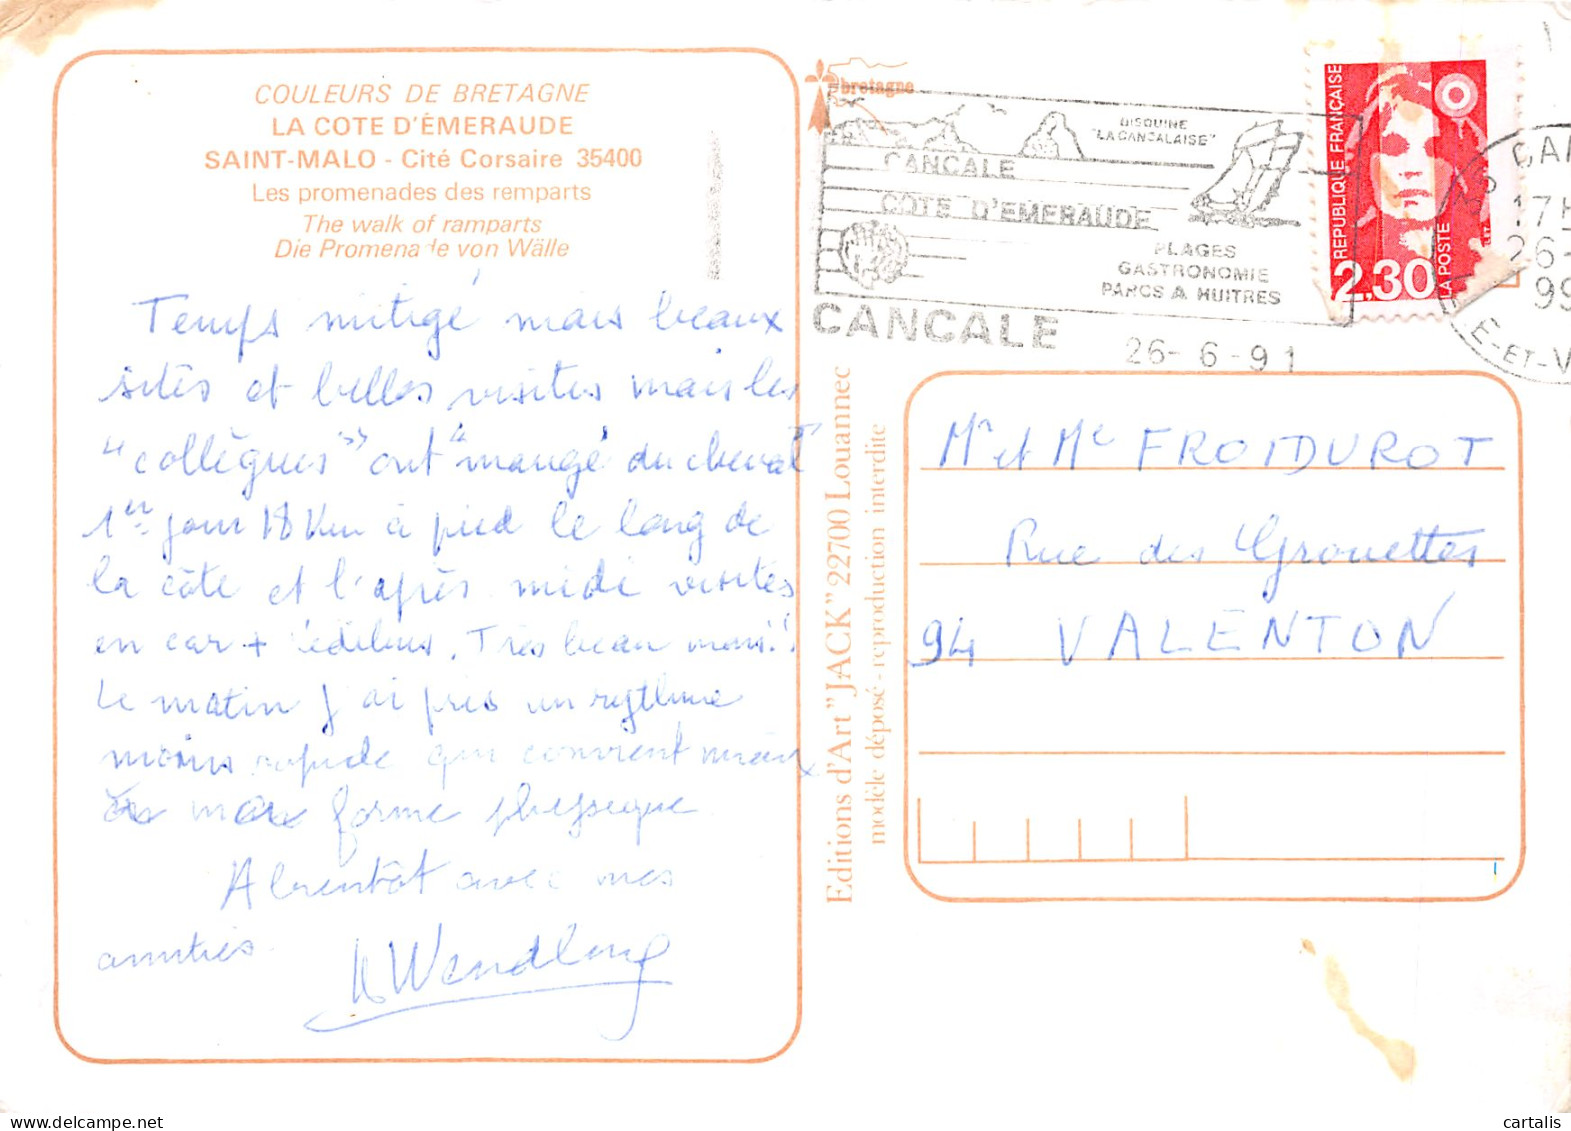 COULEURS DE BRETAGNE
LA COTE D'ÉMERAUDE
SAINT-MALO - Cité Corsaire 35400
Les promenades des remparts
The walk of ramparts
Die Promenade von Wälle
Temps mitigé mais beaux
sites et belles visites mais les
"collègues" ont "mangé du cheval"
1er jour 18 Km à pied le long de
la côte et l'après midi visites
en car + pédibus. Très beau mais!!
Le matin j'ai pris un rythme
moins rapide qui convient mieux
ma forme physique
A bientôt avec mes
amitiés.
Wendling
bretagne
BISQUINE
"LA CANCALAISE"
CANCALE
COTE D'EMERAUDE
PLAGES
GASTRONOMIE
PARCS A HUITRES
CANCALE
26-6-91
REPUBLIQUE FRANÇAISE
2,30
LA POSTE
35 CAN
17H
26-
199
E-ET-V
Editions d'Art "JACK" 22700 Louannec
modèle déposé - reproduction interdite
Mr et Me FROIDUROT
Rue des Grouettes
94 VALENTON
cartalis.com